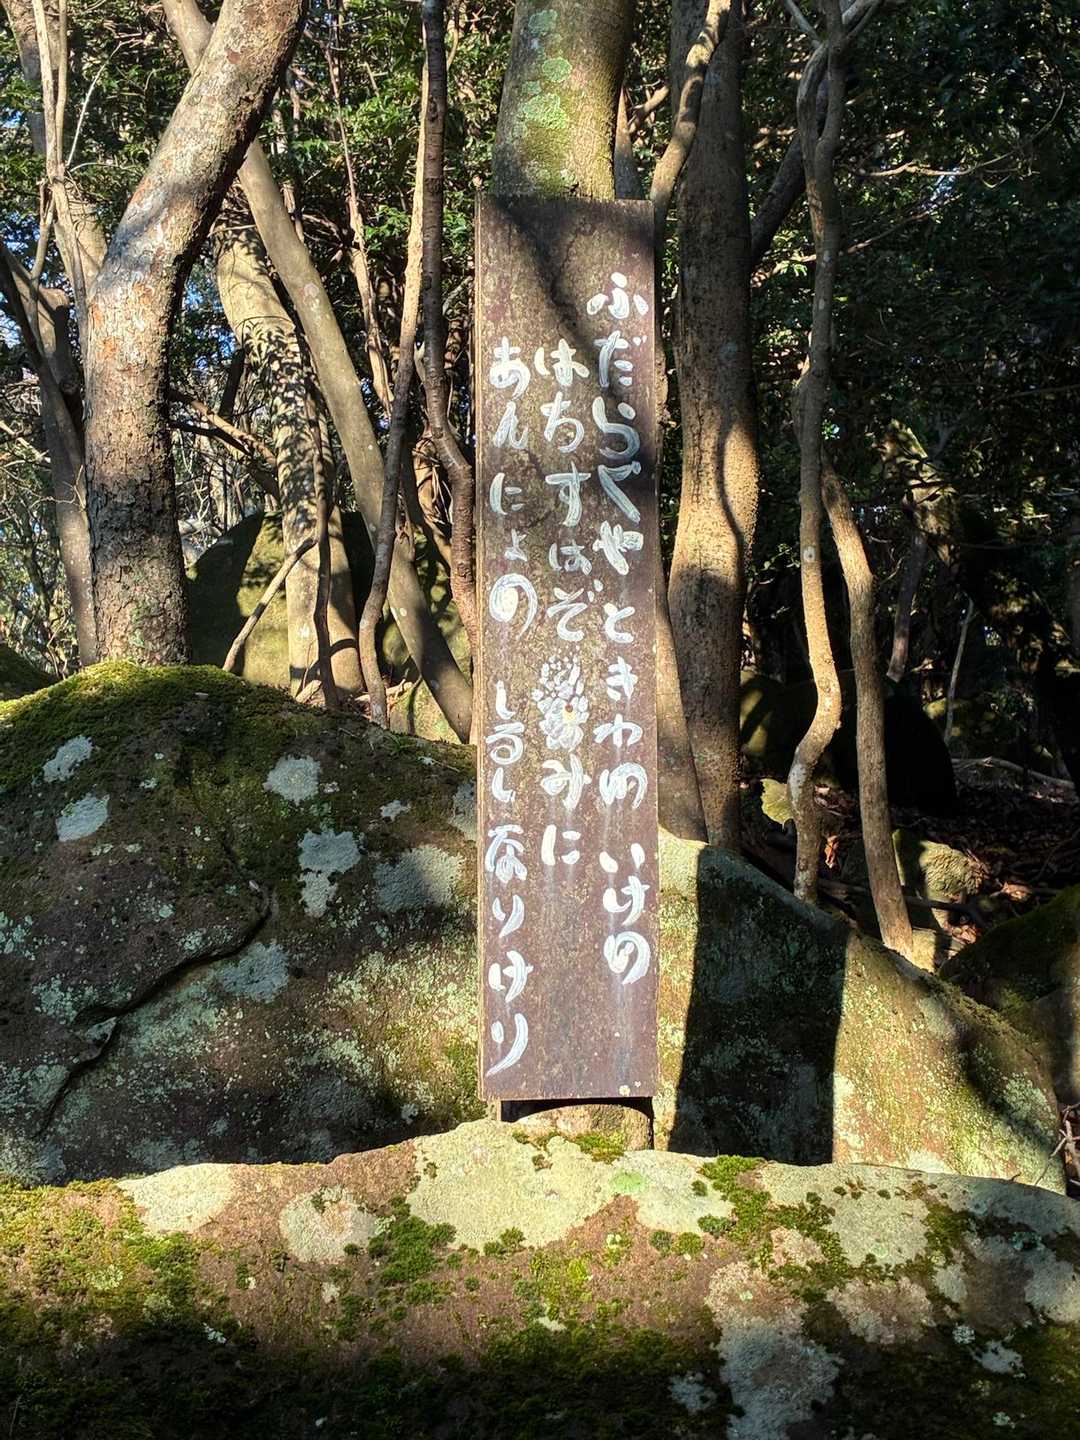 ふだらくや ときわの いけの
はちすばぞ みに
あんにょの しるしなりけり